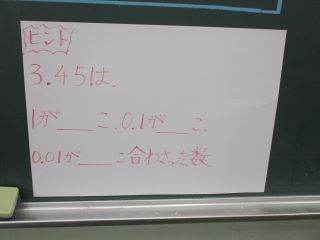 ヒント
3.45は、
1が___こ、0.1が___こ、
0.01が___こ合わさった数